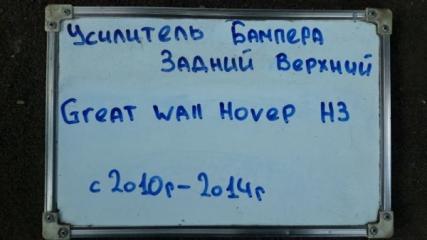 Усилитель Бампера
Задний Верхний
Great Wall Hover H3
с 2010г-2014г